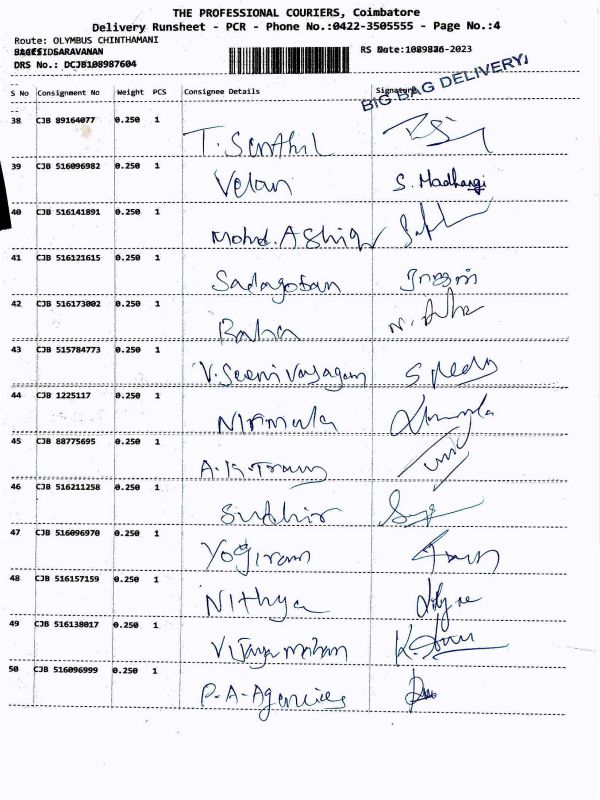 THE PROFESSIONAL COURIERS, Coimbatore
Delivery Runsheet - PCR - Phone No.:0422-3505555 - Page No.:4
Route: OLYMBUS CHINTHAMANI
SARAVANAN
DRS No.: DCJB108987604
RS Date:
-2023
BIG BAG DELIVERY
S No Consignment No Weight PCS Consignee Details Signature
38 CJB 89164077 0.250 1 T. Senthil
39 CJB 516096982 0.250 1 Velan S. Madhangi
40 CJB 516141891 0.250 1 Mohd. Ashiq
41 CJB 516121615 0.250 1 Sadagopan
42 CJB 516173002 0.250 1 Babu
43 CJB 515784773 0.250 1 V. Seenivasagam
44 CJB 1225117 0.250 1 Nirmala
45 CJB 88775695 0.250 1
46 CJB 516211258 0.250 1 Sudhir
47 CJB 516096970 0.250 1 Yogiram
48 CJB 516157159 0.250 1 Nithya
49 CJB 516138017 0.250 1 Vijaya mohan
50 CJB 516096999 0.250 1 P-A-Agencies